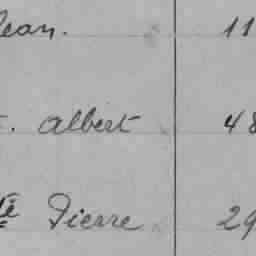 Jean. 11
t. Albert 48
té Pierre. 29